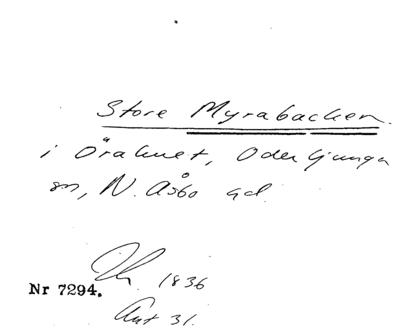 Store Myrabacken.
i Örahult, Oderljunga
sn, N. Åsbo hd.
1836
Nr 7294.
Aut 31.